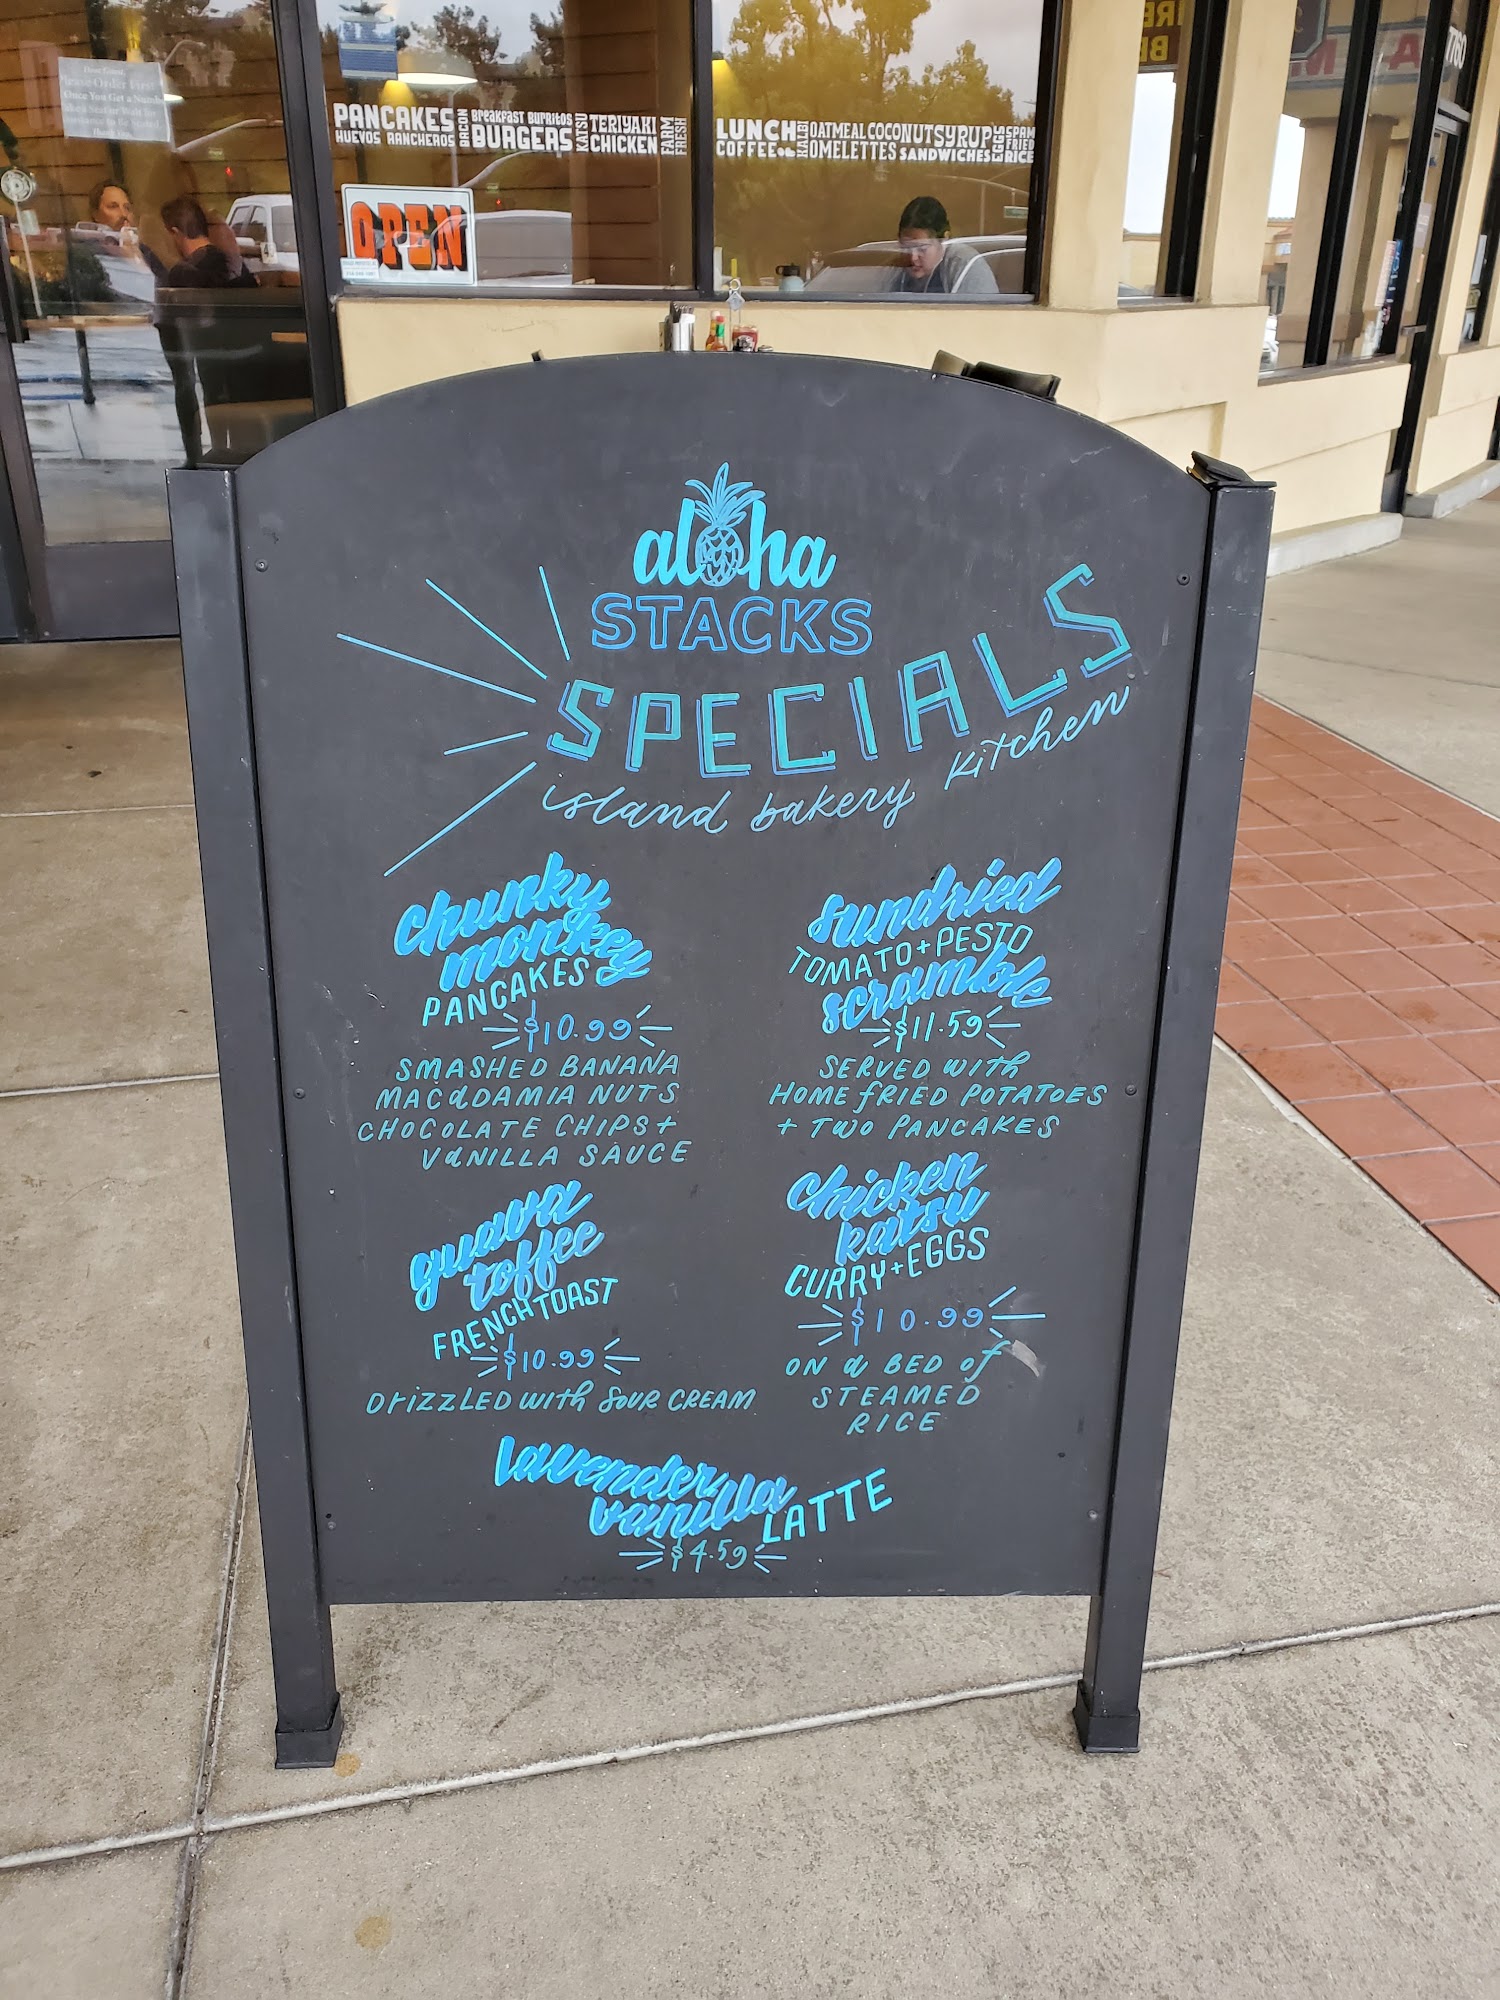 Please Order First
Once You Get a Number
PANCAKES
HUEVOS RANCHEROS
BACON
Breakfast Burritos
BURGERS
KATSU
TERIYAKI
CHICKEN
FARM
FRESH
LUNCH
COFFEE
KALBI
OATMEAL COCONUT SYRUP
OMELETTES SANDWICHES
EGGS
SPAM
FRIED
RICE
OPEN
1760
aloha
STACKS
SPECIALS
island bakery kitchen
chunky
monkey
PANCAKES
$10.99
SMASHED BANANA
MACADAMIA NUTS
CHOCOLATE CHIPS +
VANILLA SAUCE
guava
toffee
FRENCH TOAST
$10.99
DrizzLED with SOUR CREAM
sundried
TOMATO + PESTO
scramble
$11.59
SERVED with
HOME fRIED POTATOES
+ TWO PANCAKES
chicken
katsu
CURRY + EGGS
$10.99
ON a BED of
STEAMED
RICE
lavender
vanilla LATTE
$4.59